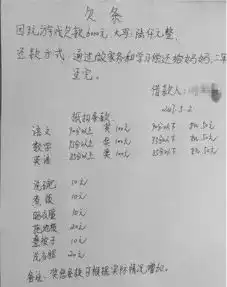 欠条
因玩游戏欠款6000元,大写:陆仟元整。
还款方式:通过做家务和学习偿还给奶奶,二年
还完。
借款人:
2023.5.2
抵扣条款
语文 90分以上 奖100元 90分以下 扣50元
数学 95分以上 奖100元 95分以下 扣50元
英语 95分以上 奖100元 95分以下 扣50元
洗碗 10元
煮饭 10元
晒衣服 10元
拖地板 20元
叠被子 10元
洗衣服 20元
备注:奖惩条款可根据实际情况增加。